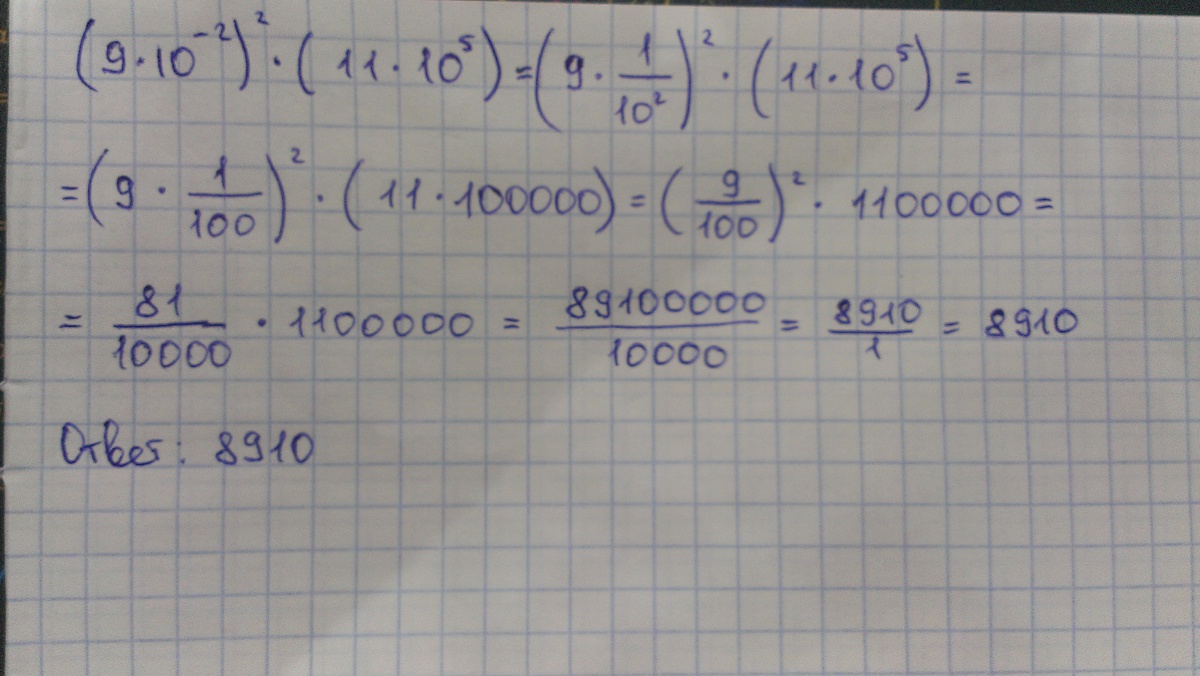 (9·10⁻²)²·(11·10⁵)=(9·1/10²)²·(11·10⁵)=
=(9·1/100)²·(11·100000)=(9/100)²·1100000=
=81/10000·1100000=89100000/10000=8910/1=8910
Ответ: 8910